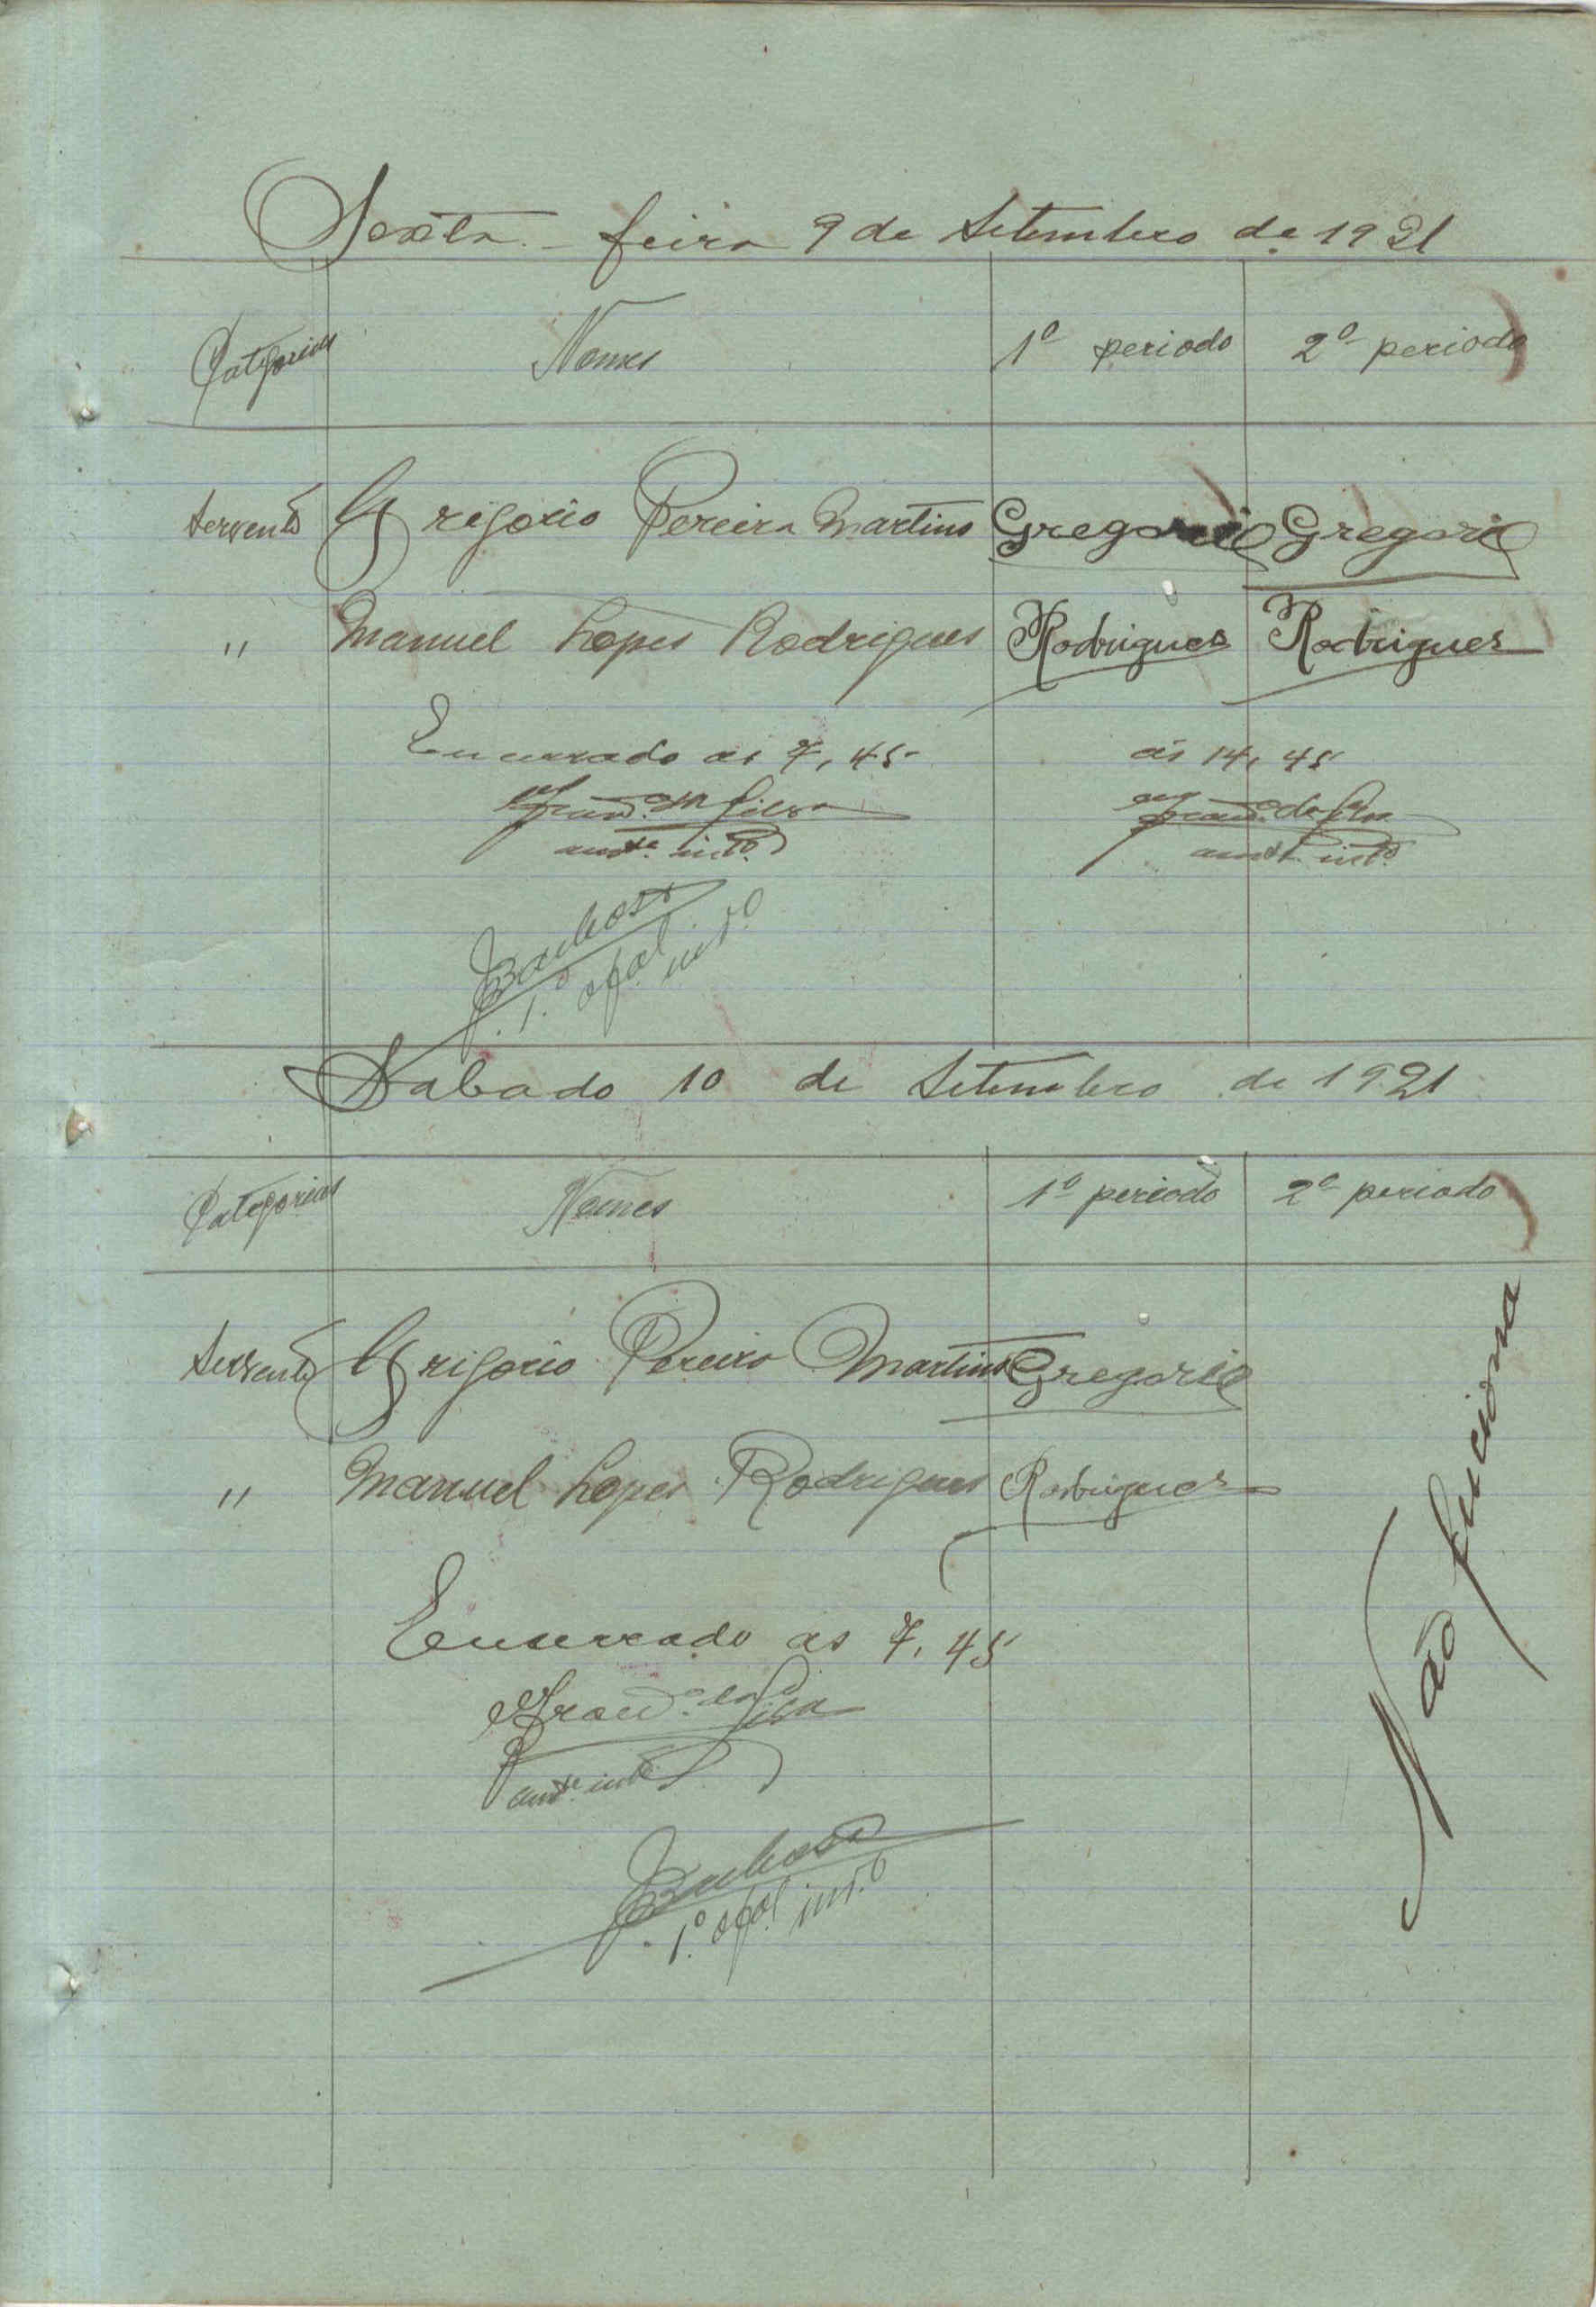 Sexta-feira 9 de Setembro de 1921
Categorias Nomes 1º periodo 2º periodo
Servente Grigorio Pereira Martins Gregorio Gregorio
" Manuel Lopes Rodrigues Rodrigues Rodrigues
Encerrado as 7,45 ás 14,45
Silva
Barbosa
1.º ofal. int.o
Sabado 10 de Setembro de 1921
Categorias Nomes 1º periodo 2º periodo
Servente Grigorio Pereira Martins Gregorio
" Manuel Lopes Rodrigues Rodrigues
Não funciona
Encerrado as 7,45
Silva
Barbosa
1.º ofal. int.o